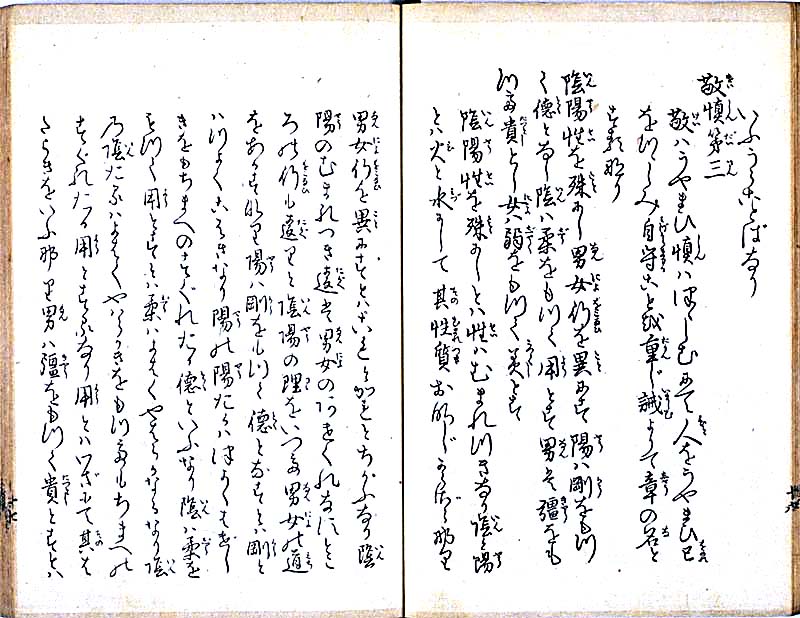 いふうることばなり
敬慎第三
敬ハうやまひ慎ハつゝしむにて人をうやまひ己
をつゝしみ自守ことを重じ誡よつて章の名と
す
陰陽性を殊にし男女行を異にす陽ハ剛をもつ
て徳となし陰ハ柔をもつて用とす男ハ彊をも
つて貴とし女ハ弱をもつて美とす
陰陽性を殊にしとハ性ハむまれつきなり陰と陽
とハ火と水にして其性質おなじからざるなり
男女行を異にすとハ とちがふなり陰
陽のむまれつき違ば男女の とこ
ろの行も違りと陰陽の理をいつて男女の道
をあかすなり陽ハ剛をもつて徳となすとハ剛と
ハつよくこはきなり陽の陽たるハつよく
きをもちまへのすぐれたる徳といふなり陰ハ柔を
もつて用とすとハ柔ハよはくやはらかなるなり陰
の陰たるハよはくやハらかきをもつてもちまへの
すぐれたる用とするなり用とハわざにて其
たらきをいふなり男ハ彊をもつて貴とすとハ